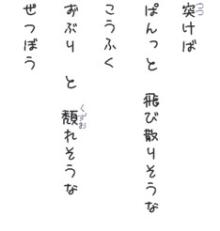 突(つつ)けば
ぱんっと 飛び散りそうな
こうふく
ずぶり と 頽(くずお)れそうな
ぜつぼう